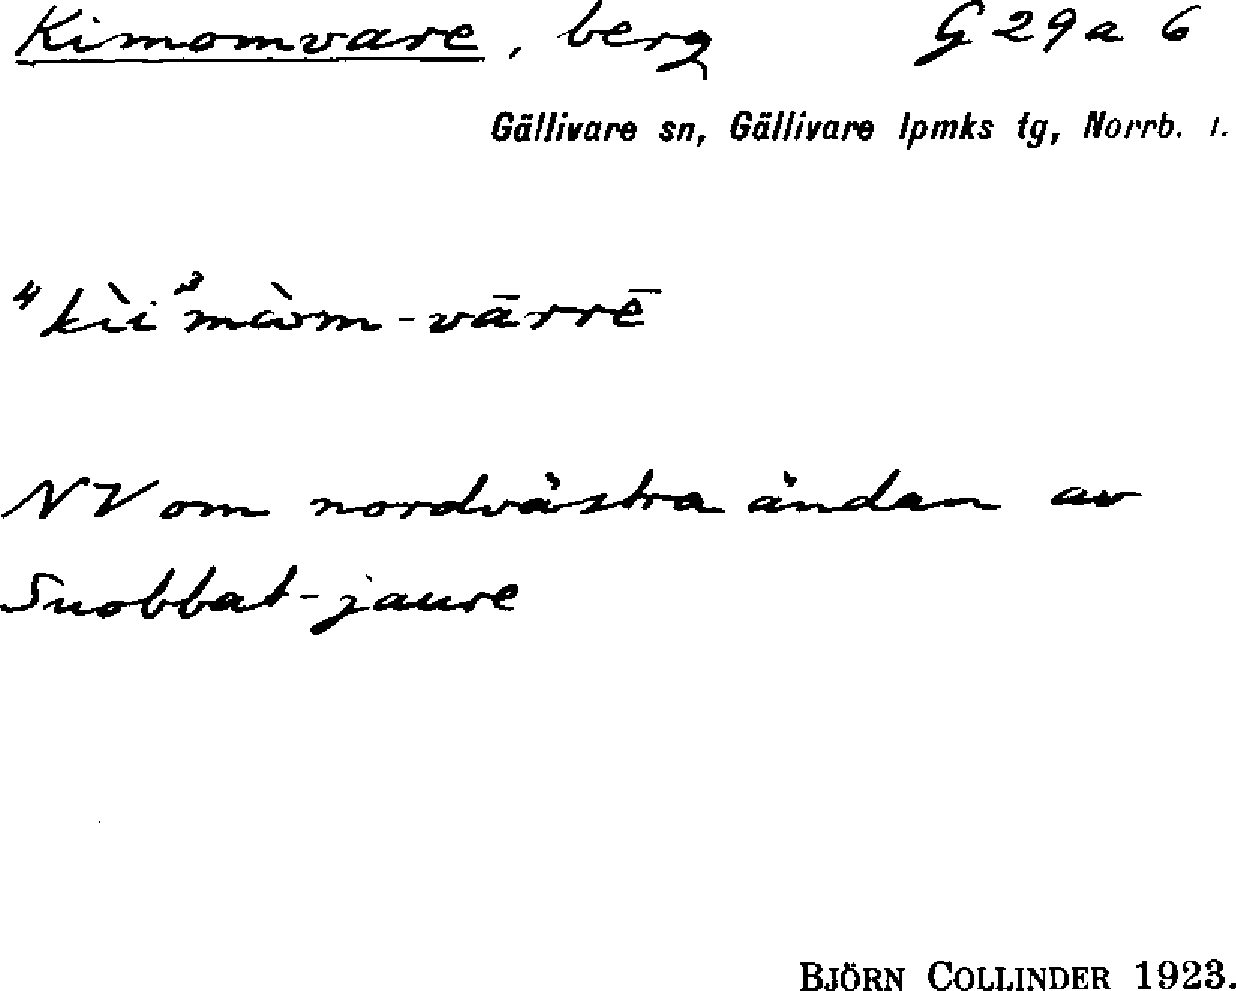 Kimomvare, berg G 29 a 6
Gällivare sn, Gällivare lpmks tg, Norrb. l.
NV om nordvästra ändan av
Snobbat-jaure
BJÖRN COLLINDER 1923.